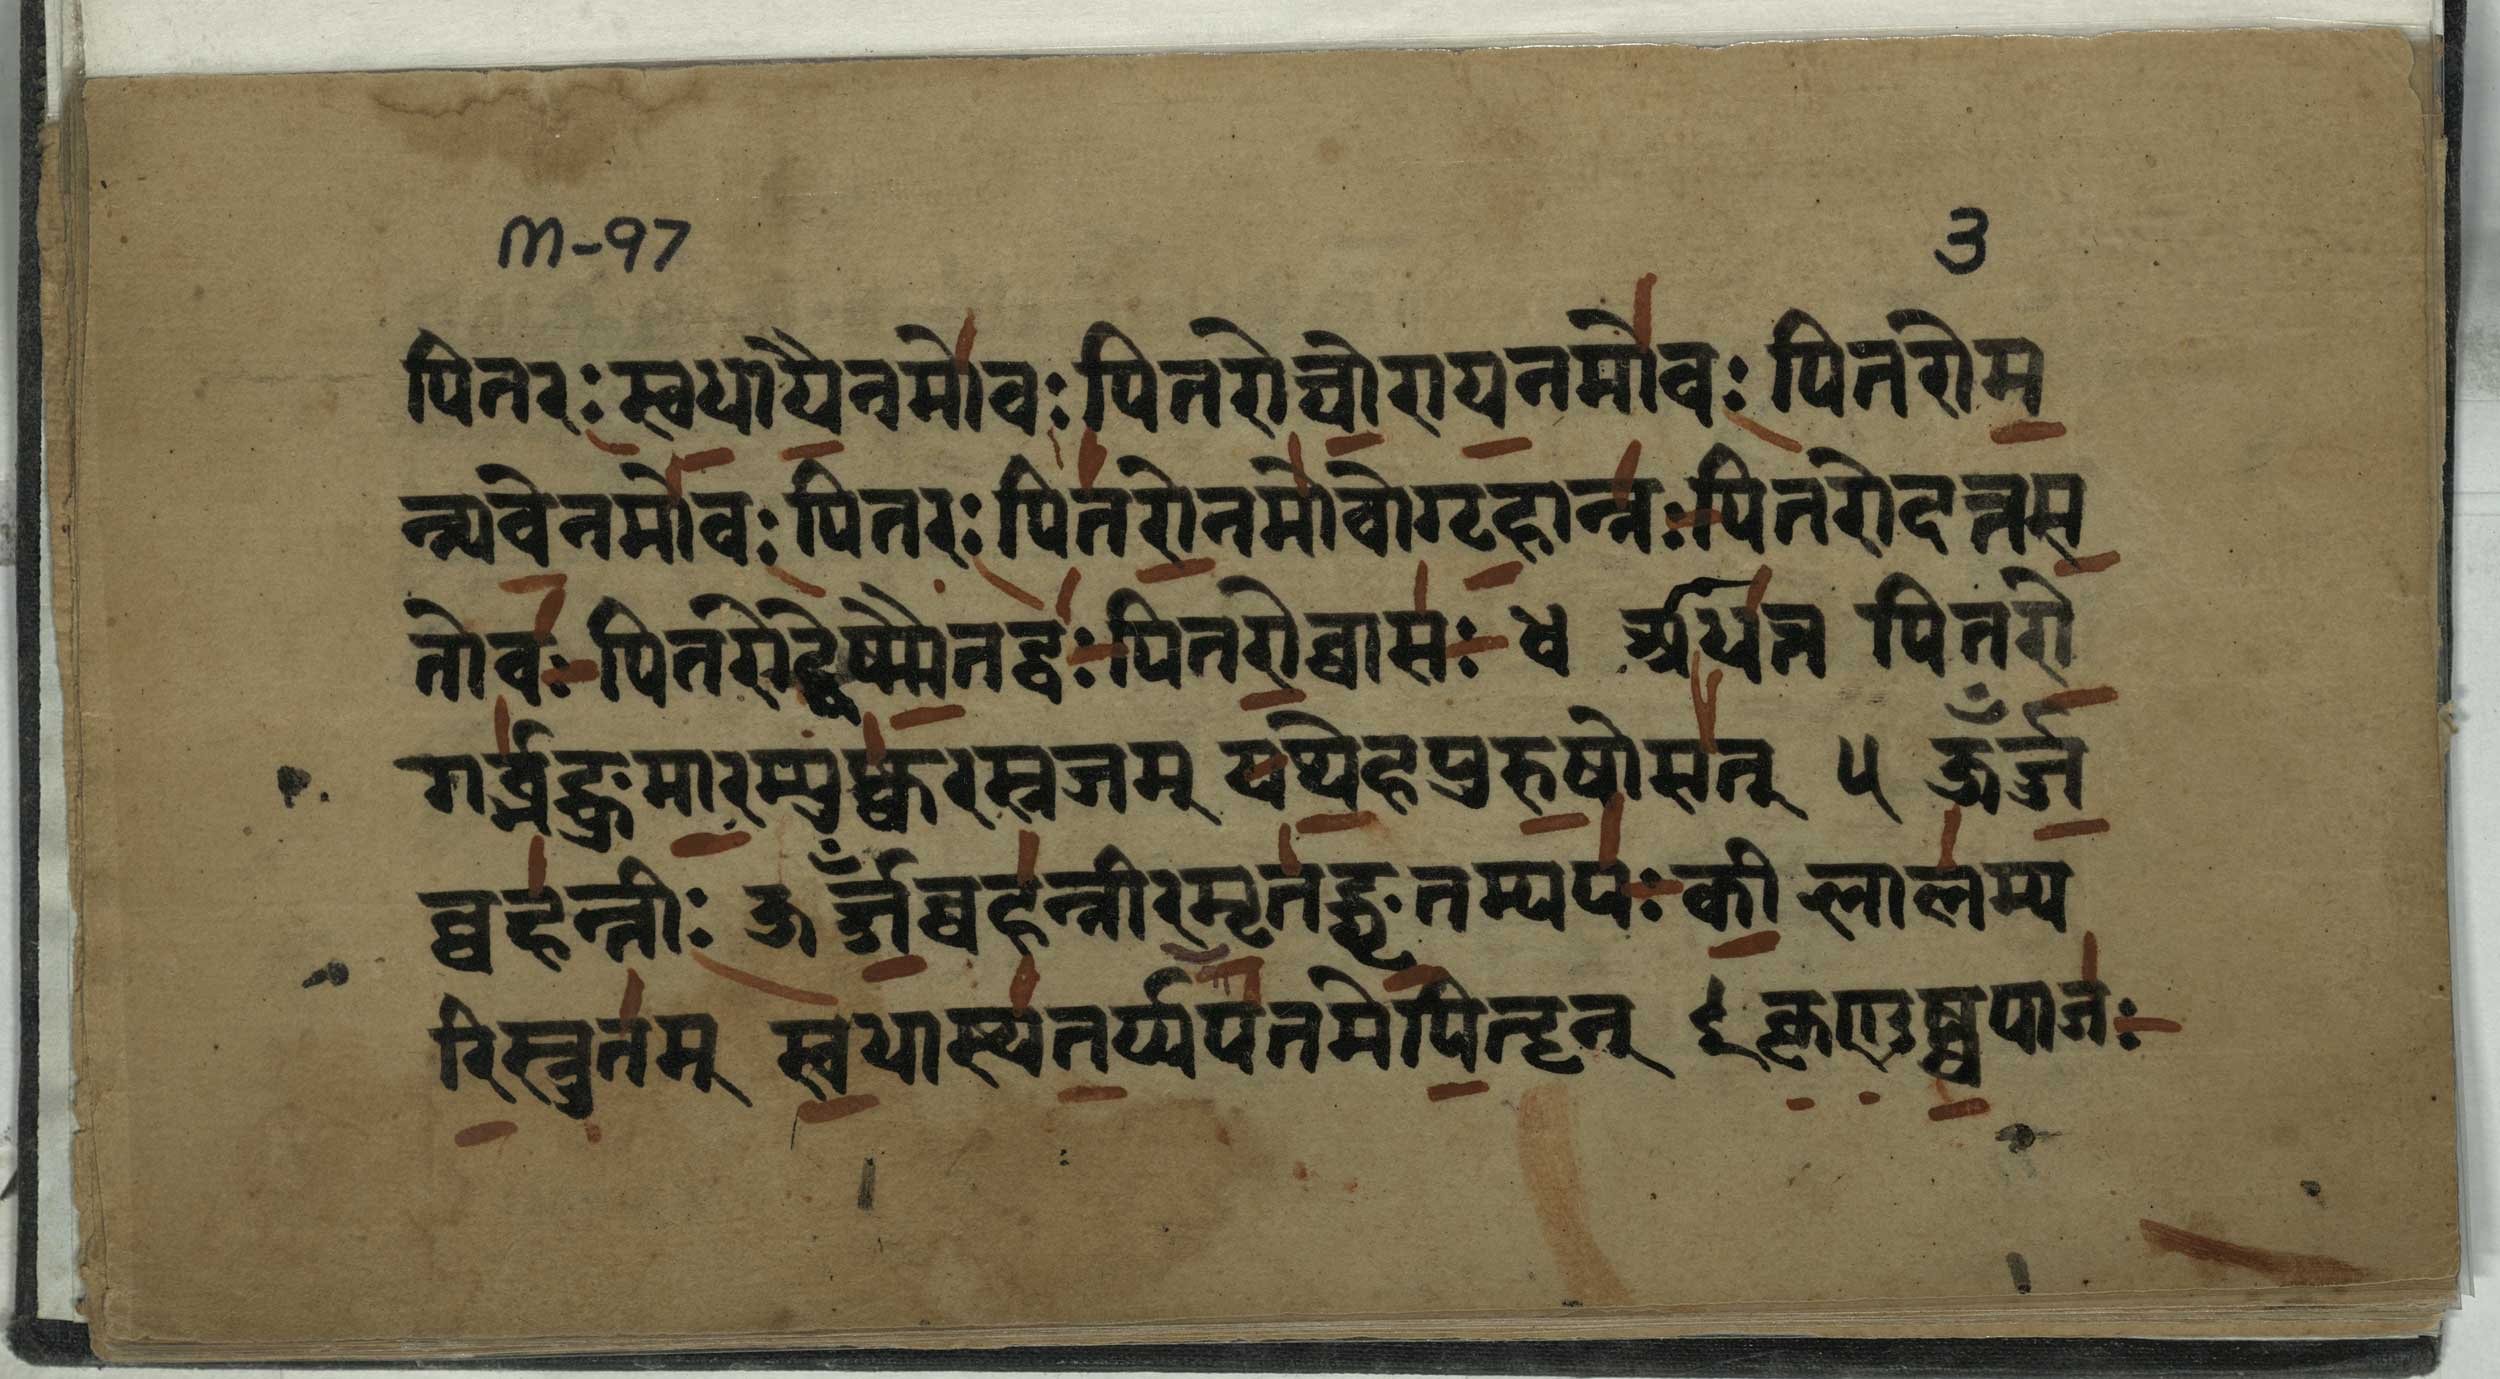 M-97 3
पितरः स्वधायै नमो वः पितरो घोराय नमो वः पितरो म
न्न्यवे नमो वः पितरः पितरो नमो वो गृहान्नः पितरो दत्तस
तो वः पितरो देष्मैतद्वः पितरो व्वासः ४ आधत्त पितरो
गर्ब्भङ्कुमारम्पुष्करस्रजम् यथेह पुरुषोसत् ५ ऊर्ज्जँ
व्वहन्तीः ऊर्ज्जँ व्वहन्तीरमृतङ्घृतम्पयः कीलालम्प
रिस्रुतम् स्वधास्थ तर्प्पयत मे पितॄन् ६ कृणुष्ष्वपाजः